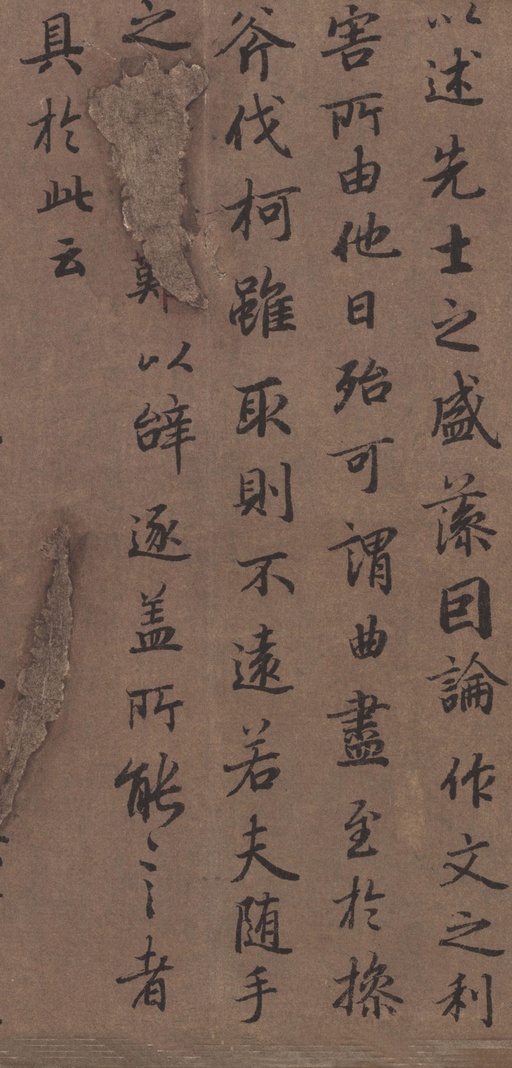 以述先士之盛藻囙論作文之利
害所由他日殆可謂曲盡至於操
斧伐柯雖取則不遠若夫随手
之以辝逐盖所能言者
具於此云